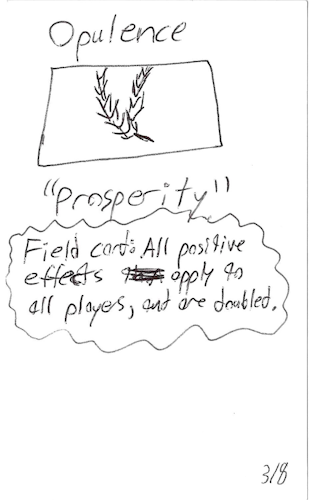 Opulence
"Prosperity"
Field card: All positive
effects apply to
all players, and are doubled.
3/8